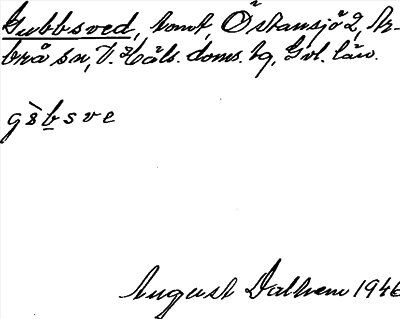 Gubbsved, tomt, Östansjö 2, Ar-
brå sn, V. Häls. doms. hg, Gvl. län.
gs̀b̲sve
August Dalhem 1946